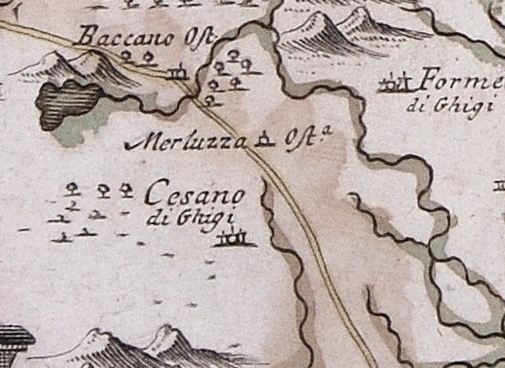 Baccano Ost.
Forme
di Ghigi
Merluzza Ost.ª
Cesano
di Ghigi